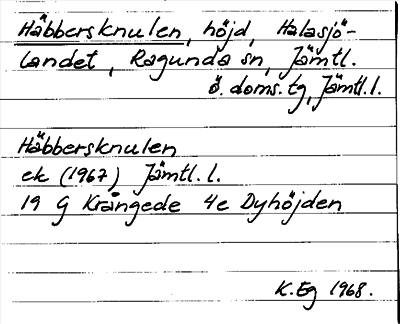 Häbbersknulen, höjd, Halasjö-
landet, Ragunda sn, Jämtl.
ö. doms. tg, Jämtl. l.
Häbbersknulen
ek (1967) Jämtl. l.
19 G Krångede 4e Dyhöjden
K. Eg 1968.